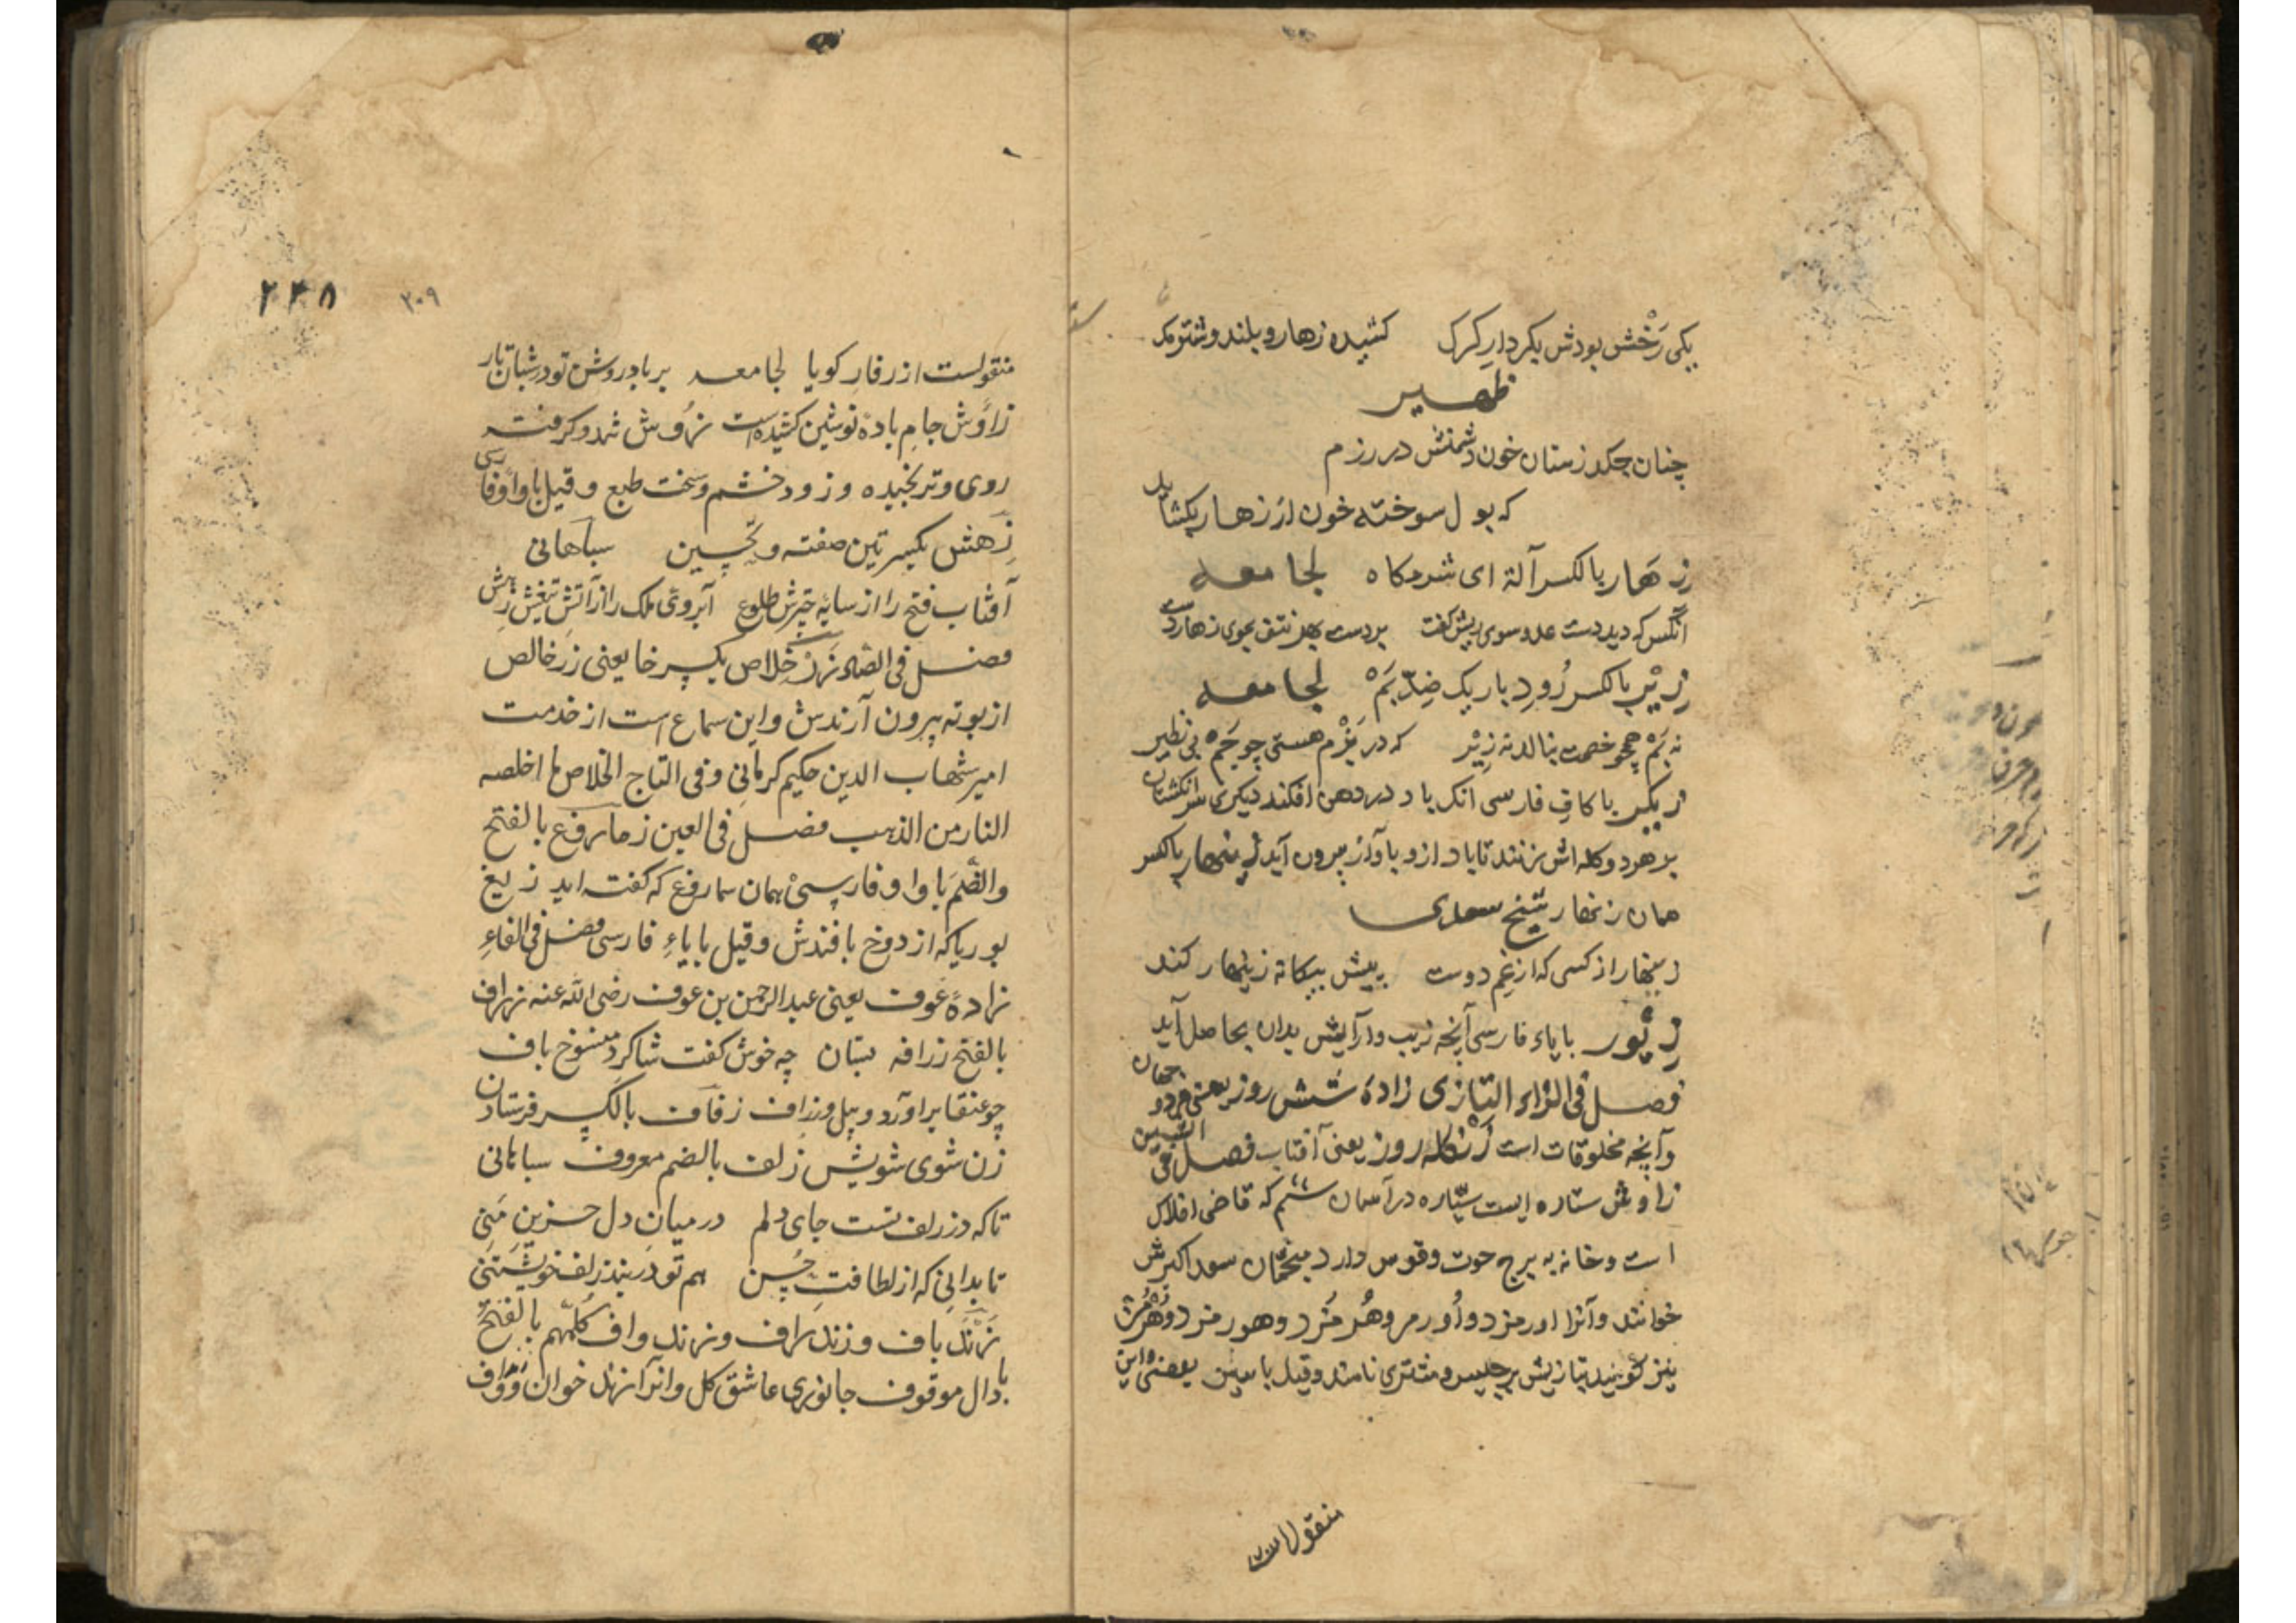 یکی رَخْش بودش بکردارِ کرک کشیده زهار و بلند و شترک
ظهیر
چنان چکد زستان خون دشمنش در رزم
که بول سوخته خون از زهار بکشاید
زهار بالکسر آلة ای شرمکاه لجامعه
آنکس که دید دست عدو سوی ریش گفت بردست بهر نتف بموی زهار دست
زیْر بالکسر رُودِ باریک ضِدّ بَمْ لجامعه
نه بَمْ همچو خصمت بنالد نه زِیْر که در بَزْم هستی چو جَمْ بی نظیر
زیگر با کافِ فارسی آنک باد در دهن افکند دیگری سر انگشتان
بر هر دو کله اش بزنند تا باد از و با آواز بیرون آید زینهار بالکسر
همان زنهار شیخ سعدی
زینهار از کسی که از غم دوست پیش بیگانه زینهار کند
زیور با یاء فارسی آنچه زیب و آرایش بدان بحاصل آید
فصل فی الزاء التازی زادهٔ شش روز یعنی هر دو جهان
و آنچه مخلوقات است زنکله روز یعنی آفتاب فصل فی الشین
زاوش ستاره ایست سیّاره در آسمان ششم که قاضی افلاک
است و خانه به برج حوت و قوس دارد منجمان سعد اکبرش
خوانند و آنرا اورمزد و اُورمز و هُرمُزد و هورمزد و هُرمُز
نیز گویند بتازیش برجیس و مشتری نامند و قیل با سین یعضی و این
منقول است
۲۴۸ ۲۰۹
منقولست از زفار کویا لجامعه بر باد روش تو در شبان تار
زاوش جام بادهٔ نوشین کشیده است زُوش تند و گرفته
روی و ترنجیده و زود خشم و سخت طبع و قیل با واو فارسی
زَهش بکسرتین صفته و تحسین سباهانی
آفتاب فتح را از سایهٔ چترش طلوع آبروی ملک را از آتش تیغش زهش
فصل فی الصاد زرّ خلاص بکسر خا یعنی زر خالص
از بوته بیرون آرندش و این سماع است از خدمت
امیر شهاب الدین حکیم کرمانی و فی التاج الخلاص ما اخلصه
النار من الذهب فصل فی العین زماروغ بالفتح
والضّم با واو فارسی همان سماروغ که گفته اید زیغ
بوریا که از دوخ بافندش و قیل با یاءِ فارسی فصل فی الفاءِ
زادهٔ عوف یعنی عبدالرحمن بن عوف رضی الله عنه زراف
بالفتح زرافه بستان چه خوش گفت شاگرد منسوج باف
چو عنقا برآورد و پیل و زراف زفاف بالکسر فرستادن
زن شوی شویش زلف بالضم معروف سباهانی
تا که در زلف تست جای دلم در میانِ دل حزینِ منی
تا بدانی که از لطافتِ حُسن هم تو در بند زلف خویشتنی
زَند باف و زند زاف و زند واف کلّهم بالفتح
با دال موقوف جانوری عاشق گل و آنرا زند خوان و